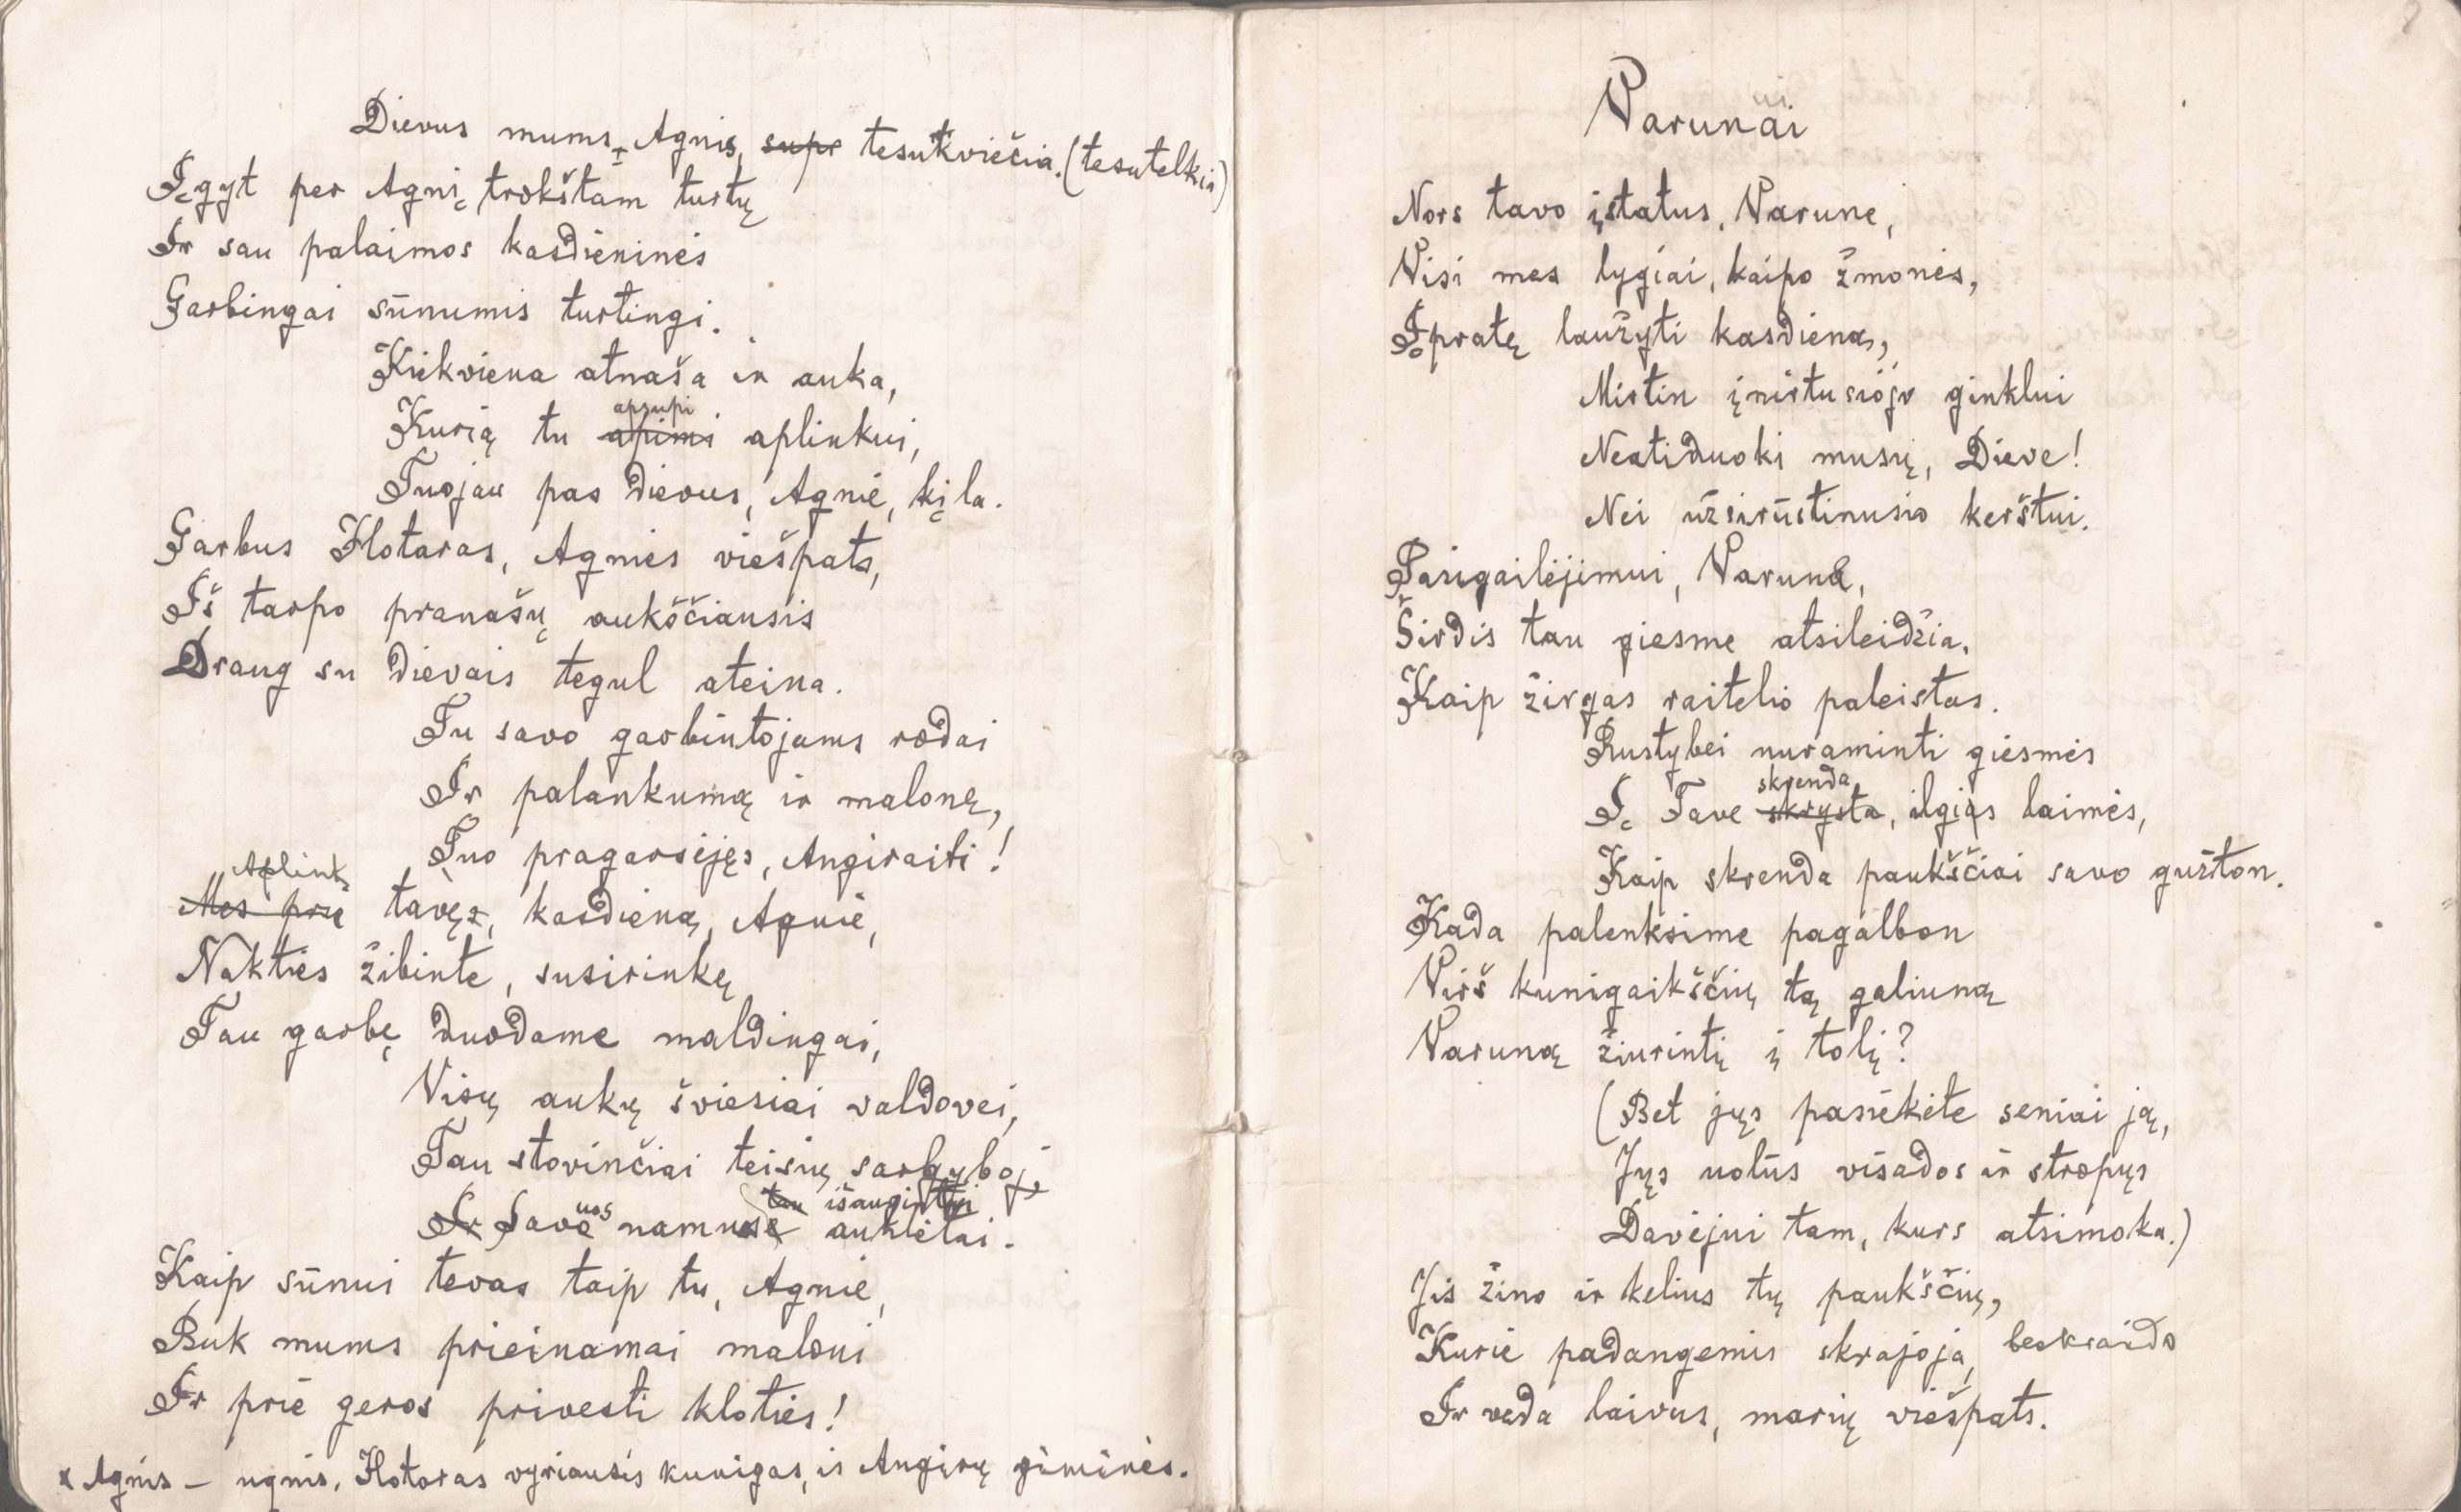 Dievus mums, Agnis, supr tesukviečia. (tesutelkia)
Įgyt per Agnį trokštam turtų
Ir sau palaimos kasdieninės
Garbingai sūnumis turtingi.
Kiekviena atnaša ir auka,
apsupi
Kurią tu apimi aplinkui,
Tuojau pas dievus, Agnie, kįla.
Garbus Hotaras, Agnies viešpats,
Iš tarpo pranašų aukščiausis
Draug su dievais tegul ateina.
Tu savo garbintojams rodai
Ir palankumą ir malonę,
Tuo pragarsėjęs, Angiraiti!
Aplink
Mes prie tavęs, kasdieną, Agnie,
Nakties žibinte, susirinkę
Tau garbę duodame maldingai,
Visų aukų šviesiai valdovei,
Tau stovinčiai teisių sargyboj,
uos tau išaugintai
Ir Savo namuose auklėtai.
Kaip sūnui tevas taip tu, Agnie,
Buk mums prieinamai maloni
Ir prie geros privesti kloties!
x Agnis - ugnis. Hotaras vyriausis kunigas, is Angirų giminės.
Varunai
Nors tavo įstatus, Varune,
Visi mes lygiai, kaipo žmonės,
Įpratę laužyti kasdieną,
Mirtin įnirtusiojo ginklui
Neatiduoki musų, Dieve!
Nei užsirūstinusio kerštui.
Pasigailėjimui, Varuna,
Širdis tau giesme atsileidžia,
Kaip žirgas raitelio paleistas.
Rustybei nuraminti giesmės
skrenda
Į Tave skrysta, ilgiąs laimės,
Kaip skrenda paukščiai savo gužton.
Kada palenksime pagalbon
Virš kunigaikščių tą galiuną
Varuną žiurintį į tolį?
(Bet jųs pasiekėte seniai ją,
Jųs uolus visados ir stropųs
Davėjui tam, kurs atsimoka.)
Jis žino ir kelius tų paukščių,
Kurie padangemis skrajoja, beskraido
Ir veda laivus, marių viešpats.